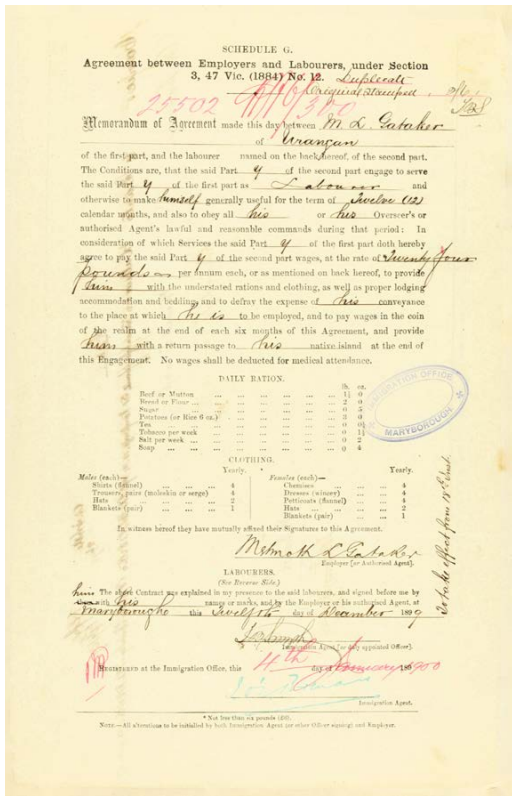 SCHEDULE G.
Agreement between Employers and Labourers, under Section
3, 47 Vic. (1884) No. 12. Duplicate
Original Stamped
25502
Memorandum of Agreement made this day between M. L. Gataker
of Urangan
of the first part, and the labourer named on the back hereof, of the second part.
The Conditions are, that the said Part y of the second part engage to serve
the said Part y of the first part as Labourer and
otherwise to make himself generally useful for the term of Twelve (12)
calendar months, and also to obey all his or his Overseer's or
authorised Agent's lawful and reasonable commands during that period: In
consideration of which Services the said Part y of the first part doth hereby
agree to pay the said Part y of the second part wages, at the rate of Twenty four
pounds per annum each, or as mentioned on back hereof, to provide
him with the understated rations and clothing, as well as proper lodging
accommodation and bedding, and to defray the expense of his conveyance
to the place at which he is to be employed, and to pay wages in the coin
of the realm at the end of each six months of this Agreement, and provide
him with a return passage to his native island at the end of
this Engagement. No wages shall be deducted for medical attendance.
DAILY RATION.
lb. oz.
Beef or Mutton ... 1½ 0
Bread or Flour ... 2 0
Sugar ... 0 5
Potatoes (or Rice 6 oz.) 3 0
Tea ... 0 0½
Tobacco per week ... 0 1½
Salt per week ... 0 2
Soap ... 0 4
IMMIGRATION OFFICE
MARYBOROUGH
CLOTHING.
Males (each)— Yearly.
Shirts (flannel) ... 4
Trousers, pairs (moleskin or serge) 4
Hats ... 2
Blankets (pair) ... 1
Females (each)— Yearly.
Chemises ... 4
Dresses (winsey) ... 4
Petticoats (flannel) ... 4
Hats ... 2
Blankets (pair) ... 1
In witness hereof they have mutually affixed their Signatures to this Agreement.
L Gataker
Employer [or Authorised Agent].
LABOURERS.
(See Reverse Side.)
him The above Contract was explained in my presence to the said labourers, and signed before me by
with his names or marks, and by the Employer or his authorised Agent, at
Maryborough this Twelfth day of December 1899
Immigration Agent (or duly appointed Officer).
REGISTERED at the Immigration Office, this 4th day January 1900
Immigration Agent.
* Not less than six pounds (£6).
NOTE.—All alterations to be initialled by both Immigration Agent (or other Officer signing) and Employer.
To take effect from